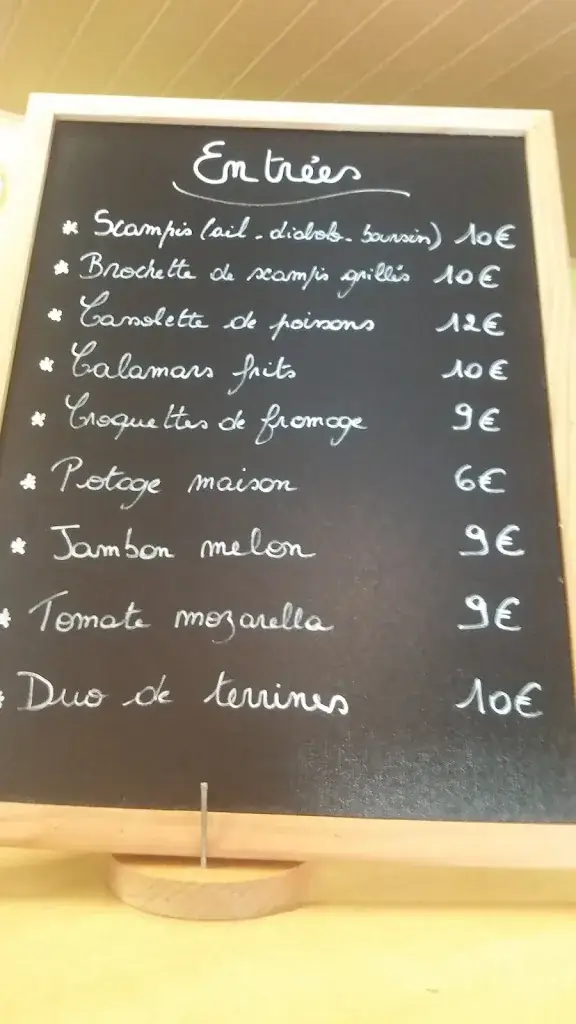 Entrées
* Scampis (ail - diabolo - boursin) 10€
* Brochette de scampis grillés 10€
* Cassolette de poissons 12€
* Calamars frits 10€
* Croquettes de fromage 9€
* Potage maison 6€
* Jambon melon 9€
* Tomate mozarella 9€
* Duo de terrines 10€